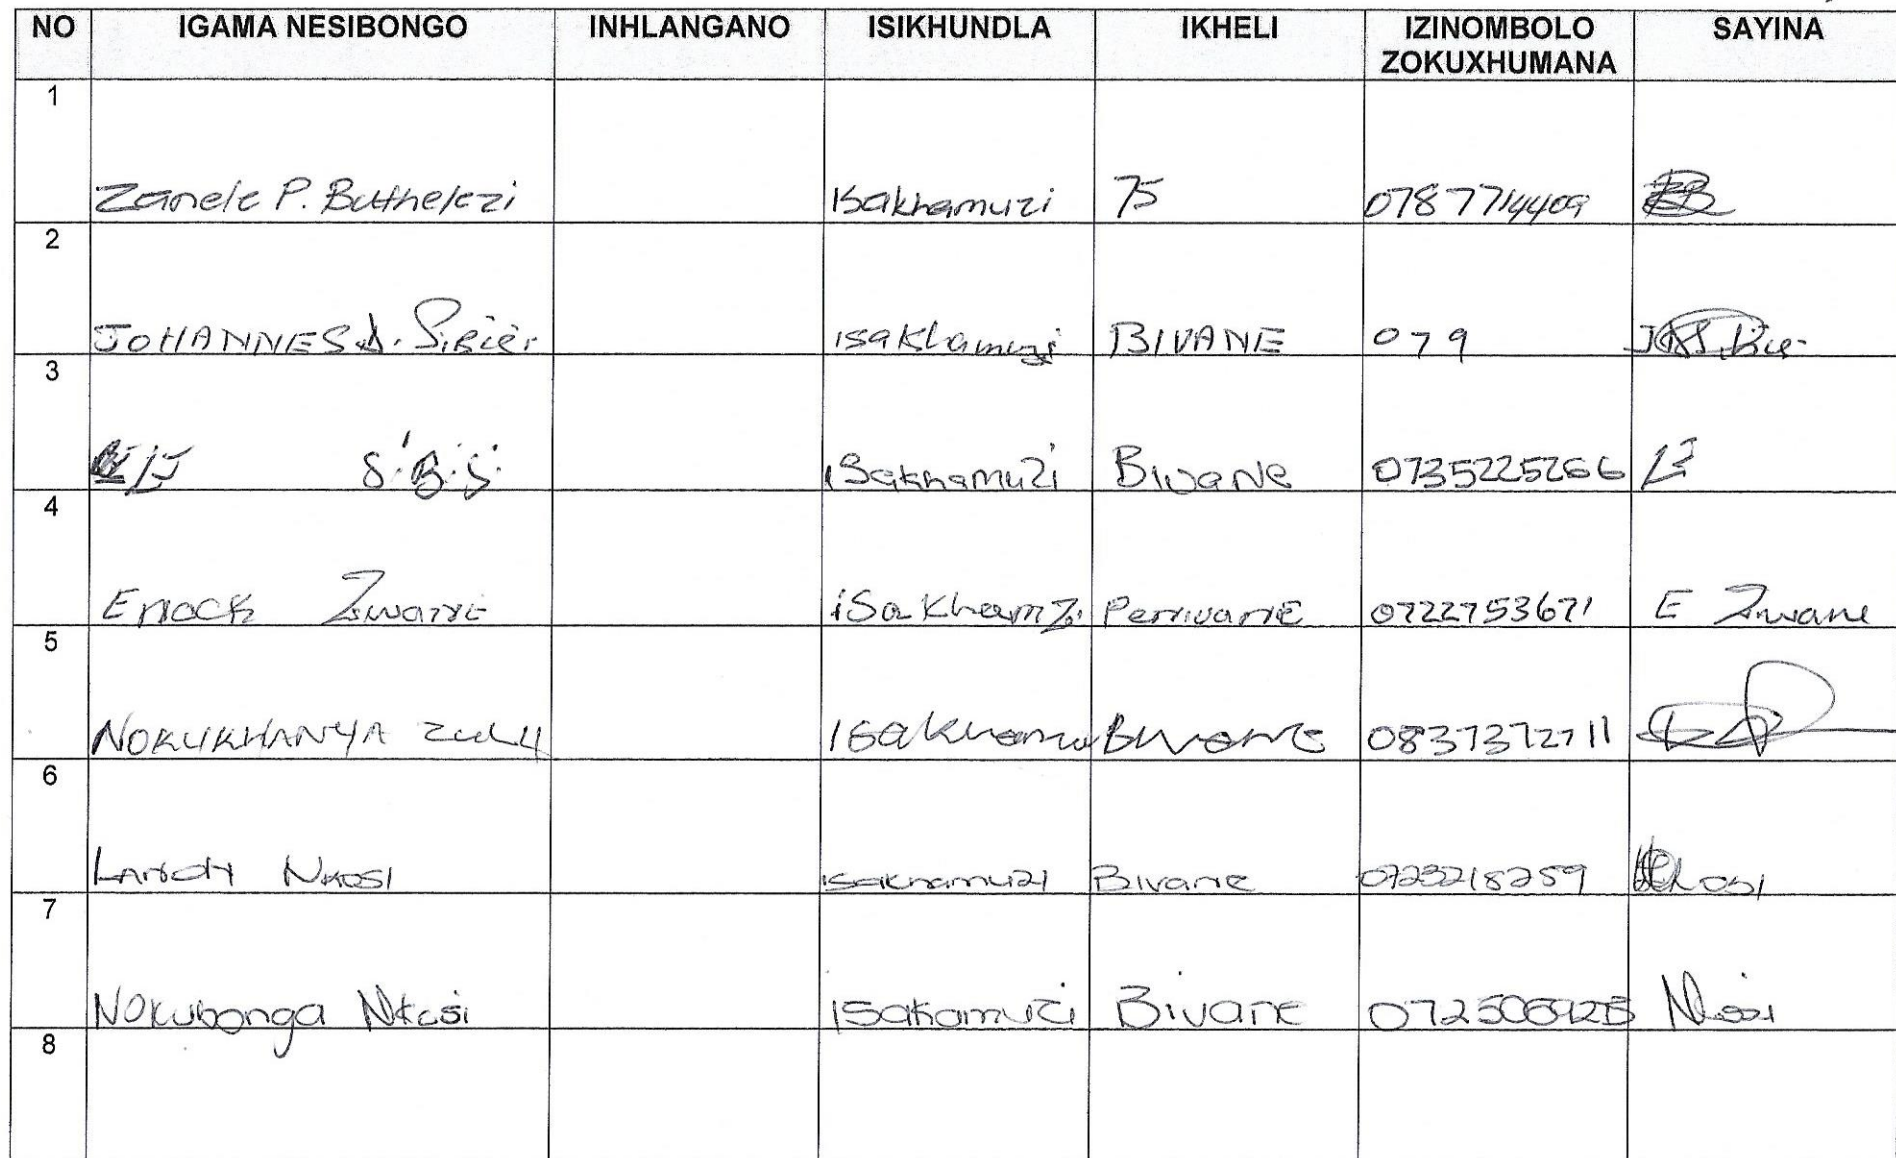 NO IGAMA NESIBONGO INHLANGANO ISIKHUNDLA IKHELI IZINOMBOLO ZOKUXHUMANA SAYINA
1
Zanele P. Buthelezi Isakhamuzi 75 0787714409
2
JOHANNES isakhamuzi BIVANE 079
3
isakhamuzi Bivane 0735225266
4
Enoch Zwane isakhamzi Penivane 0722753671 E Zwane
5
NOKUKHANYA Zulu Isakhamu Bivane 0837372711
6
Nkosi isakhamuzi Bivane 0723218259
7
Nokubonga Nkosi Isakamuzi Bivane
8